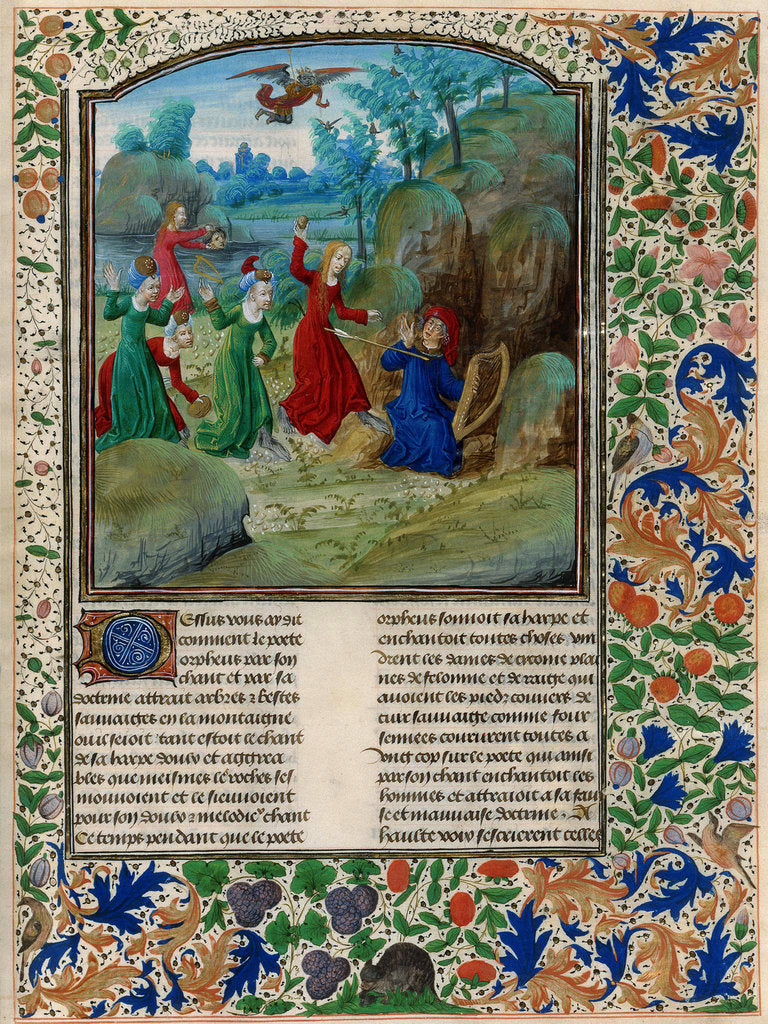 Dessus vous ay dit
comment le poete
orpheus par son
chant et par sa
doctrine attrait arbres ⁊ bestes
sauvaiges en la montaigne
ou il seioit tant estoit le chant
de sa harpe doulx et aggrea
bles que meismes le roches ses
mouvoient et le sieuvoient
pour son doulx ⁊ melodieux chant
Ce temps pendant que le poete
orpheus sonnoit sa harpe et
enchantoit toutes choses vin
drent les dames de cyconie plai
nes de felonnie et de raige qui
avoient les piedz couvers de
cuir sauvaige comme four
sennees coururent toutes a
vng cop sur le poete qui ainsi
par son chant enchantoit les
hommes et attraioit a sa faul
se et mauvaise doctrine. A
haulte voix sescrierent celles